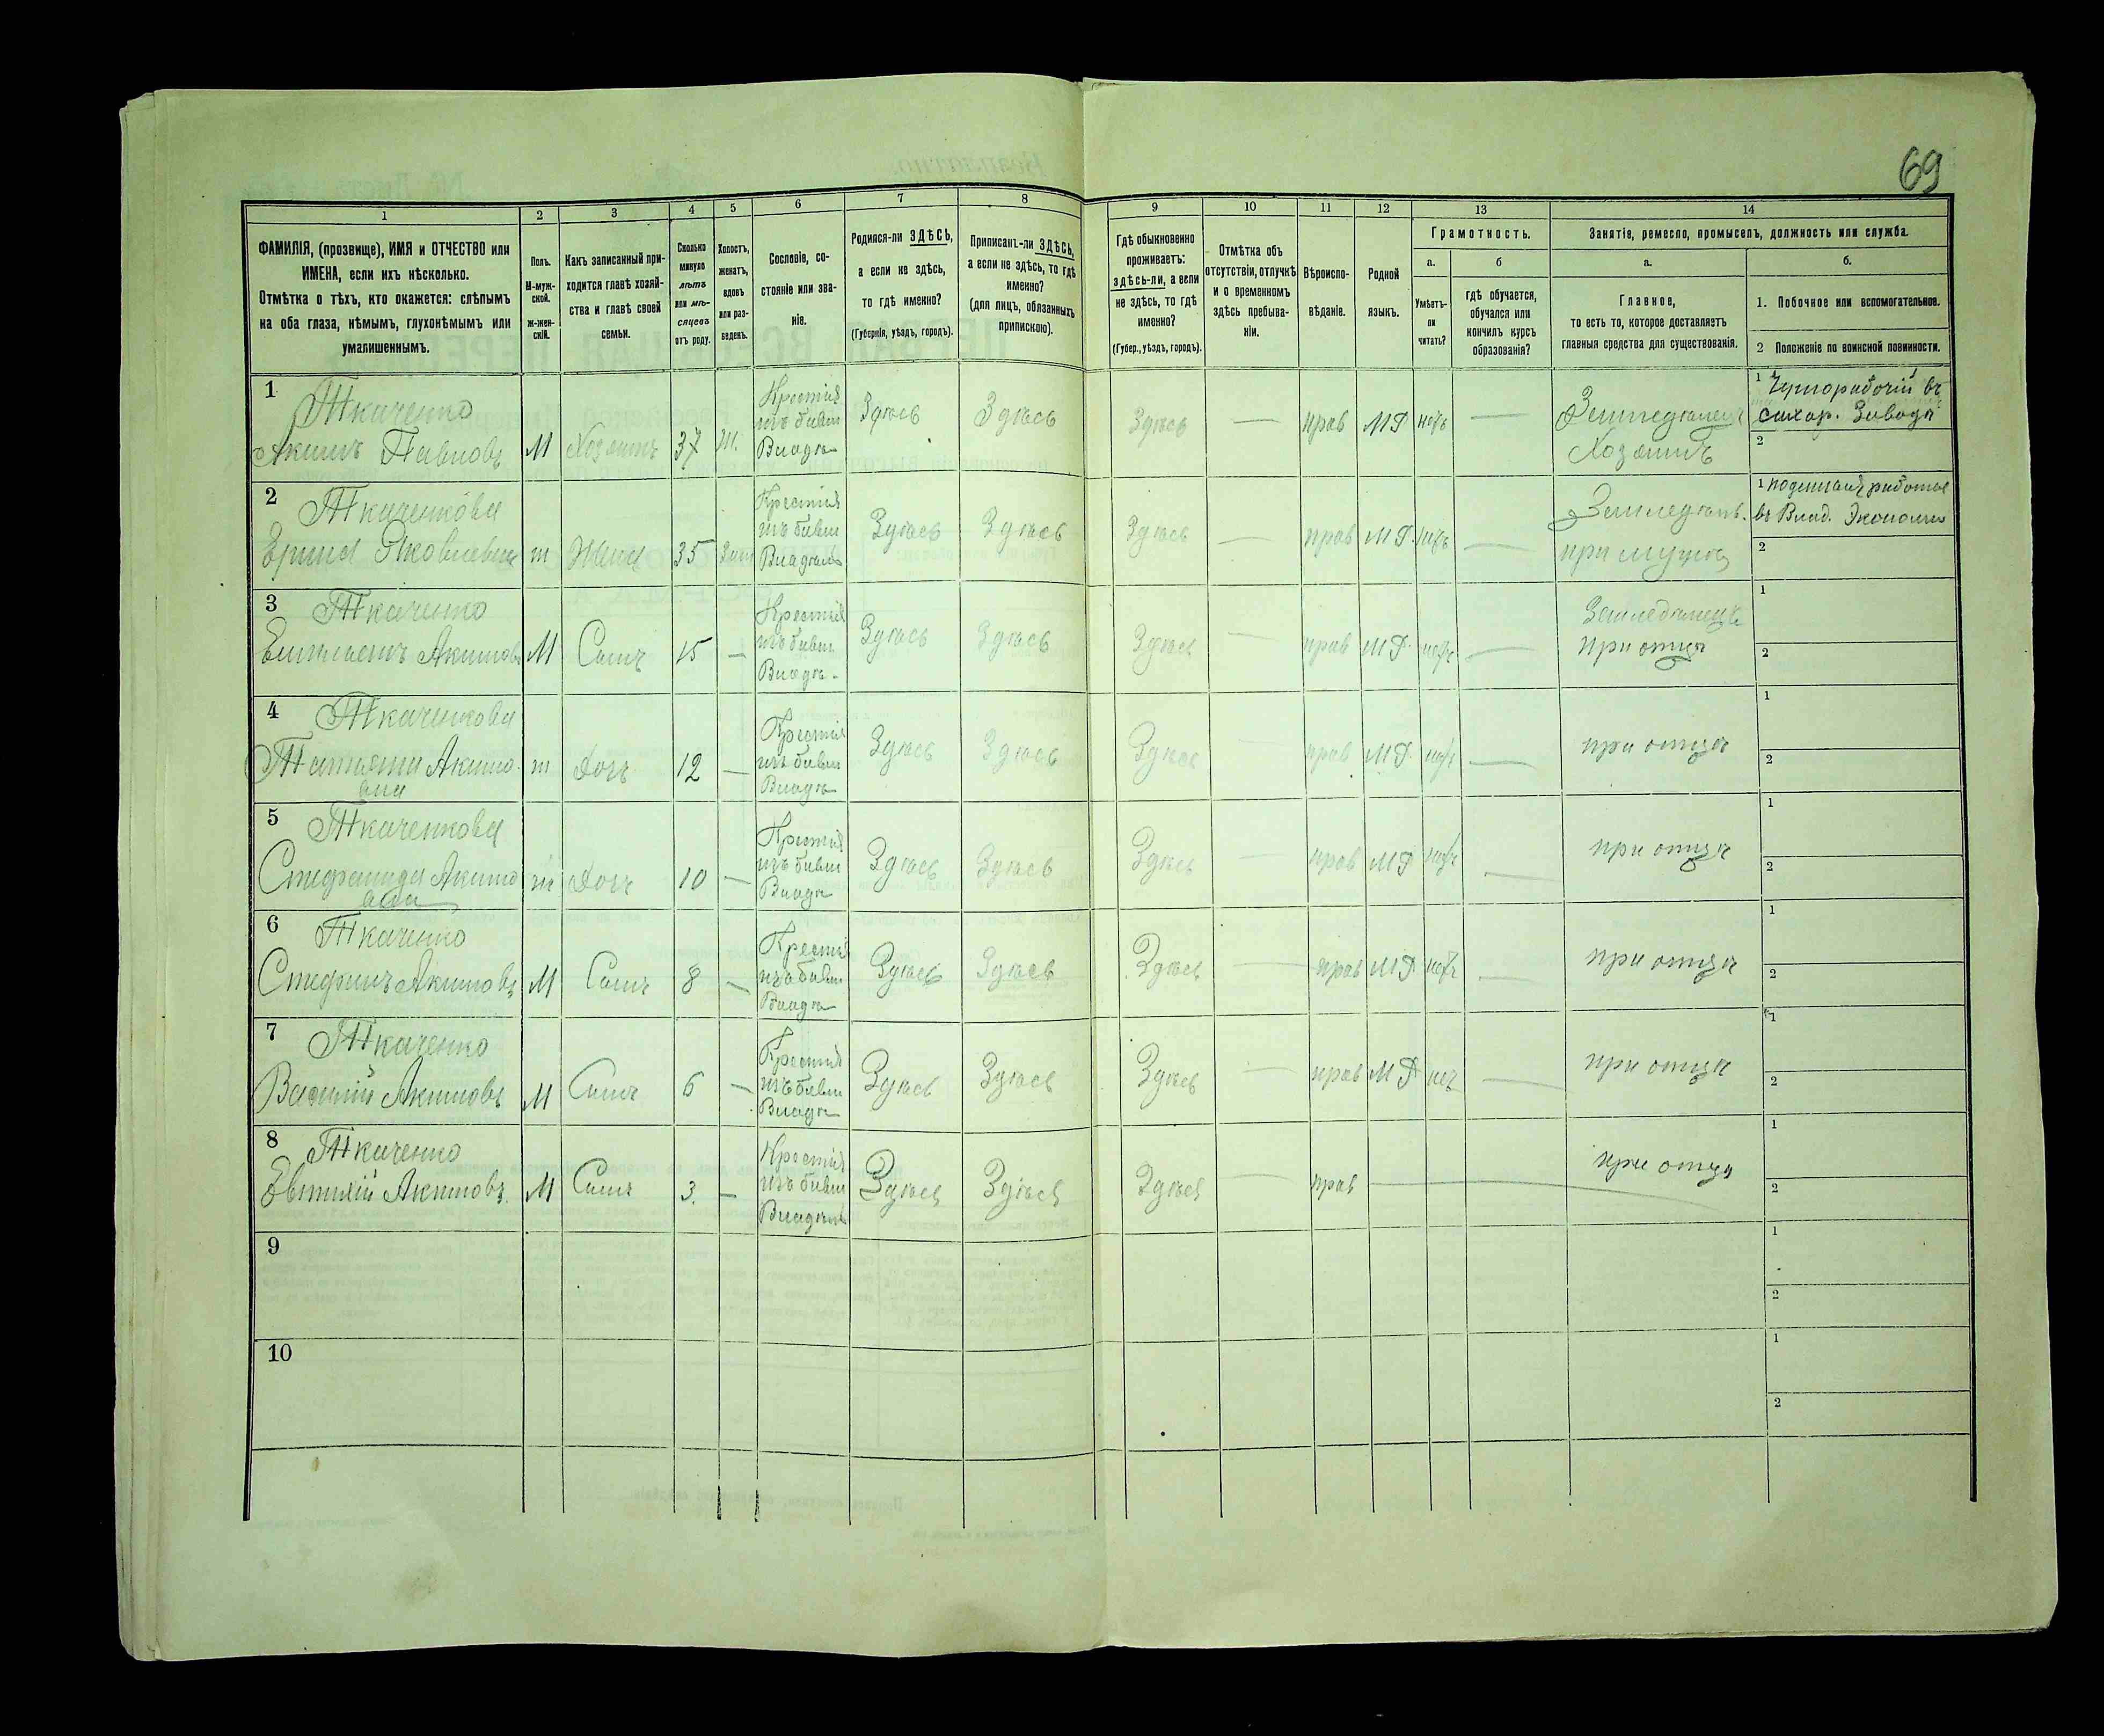 69
1
2
3
4
5
6
7
8
9
10
11
12
13
14
ФАМИЛІЯ, (прозвище), ИМЯ и ОТЧЕСТВО или
ИМЕНА, если ихъ нѣсколько.
Отмѣтка о тѣхъ, кто окажется: слѣпымъ
на оба глаза, нѣмымъ, глухонѣмымъ или
умалишеннымъ.
Полъ.
М-муж-
ской.
ж-жен-
скій.
Какъ записанный при-
ходится главѣ хозяй-
ства и главѣ своей
семьи.
Сколько
минуло
лѣтъ
или мѣ-
сяцевъ
отъ роду.
Холостъ,
женатъ,
вдовъ
или раз-
веденъ.
Сословіе, со-
стояніе или зва-
ніе.
Родился-ли ЗДѢСЬ,
а если не здѣсь,
то гдѣ именно?
(Губернія, уѣздъ, городъ).
Приписанъ-ли ЗДѢСЬ,
а если не здѣсь, то гдѣ
именно?
(для лицъ, обязанныхъ
припискою).
Гдѣ обыкновенно
проживаетъ:
здѣсь-ли, а если
не здѣсь, то гдѣ
именно?
(Губер., уѣздъ, городъ).
Отмѣтка объ
отсутствіи, отлучкѣ
и о временномъ
здѣсь пребыва-
ніи.
Вѣроиспо-
вѣданіе.
Родной
языкъ.
Грамотность.
а.
Умѣетъ-
ли
читать?
б
гдѣ обучается,
обучался или
кончилъ курсъ
образованія?
Занятіе, ремесло, промыселъ, должность или служба.
а.
Главное,
то есть то, которое доставляетъ
главныя средства для существованія.
б.
1. Побочное или вспомогательное.
2 Положеніе по воинской повинности.
1
Ткаченко
Акимъ Павловъ
М
Хозяинъ
37
Ж.
Крестья
изъ бывш
Владѣ
Здѣсь
Здѣсь
Здѣсь
—
прав
МР
нетъ
—
Земледѣлец
Хозяинъ
1 Чернорабочій въ
сахар. Заводѣ
2
2
Ткаченкова
Яковлевна
ж
Жена
35
Зам
Крестья
изъ бывш
Владѣль
Здѣсь
Здѣсь
Здѣсь
—
прав
МР.
нетъ
—
Земледѣл.
при мужѣ
1
въ Влад. Экономіи
2
3
Ткаченко
Акимовъ
М
Сынъ
15
—
Крестья
изъ бывш
Владѣ-
Здѣсь
Здѣсь
Здѣсь
—
прав
МР.
нетъ
—
Земледѣлецъ
При отцѣ
1
2
4
Ткаченкова
Татьяна Акимо
вна
ж
Дочь
12
—
Крестья
изъ бывш
Владѣ
Здѣсь
Здѣсь
Здѣсь
—
прав
МР.
нетъ
—
при отцѣ
1
2
5
Ткаченкова
Стефанида Акимо
вна
ж
Дочь
10
—
Крестья
изъ бывш
Владѣ
Здѣсь
Здѣсь
Здѣсь
—
прав
МР
нетъ
—
при отцѣ
1
2
6
Ткаченко
Стефанъ Акимовъ
М
Сынъ
8
—
Крестья
изъ бывш
Владѣ
Здѣсь
Здѣсь
Здѣсь
—
прав
МР
нетъ
—
при отцѣ
1
2
7
Ткаченко
Василій Акимовъ
М
Сынъ
6
—
Крестья
изъ бывш
Владѣ
Здѣсь
Здѣсь
Здѣсь
—
прав
МР
нетъ
—
при отцѣ
1
2
8
Ткаченко
Евтихій Акимовъ.
М
Сынъ
3.
—
Крестья
изъ бывш
Владѣль
Здѣсь
Здѣсь
Здѣсь
—
прав
—
при отцѣ
1
2
9
1
2
10
1
2